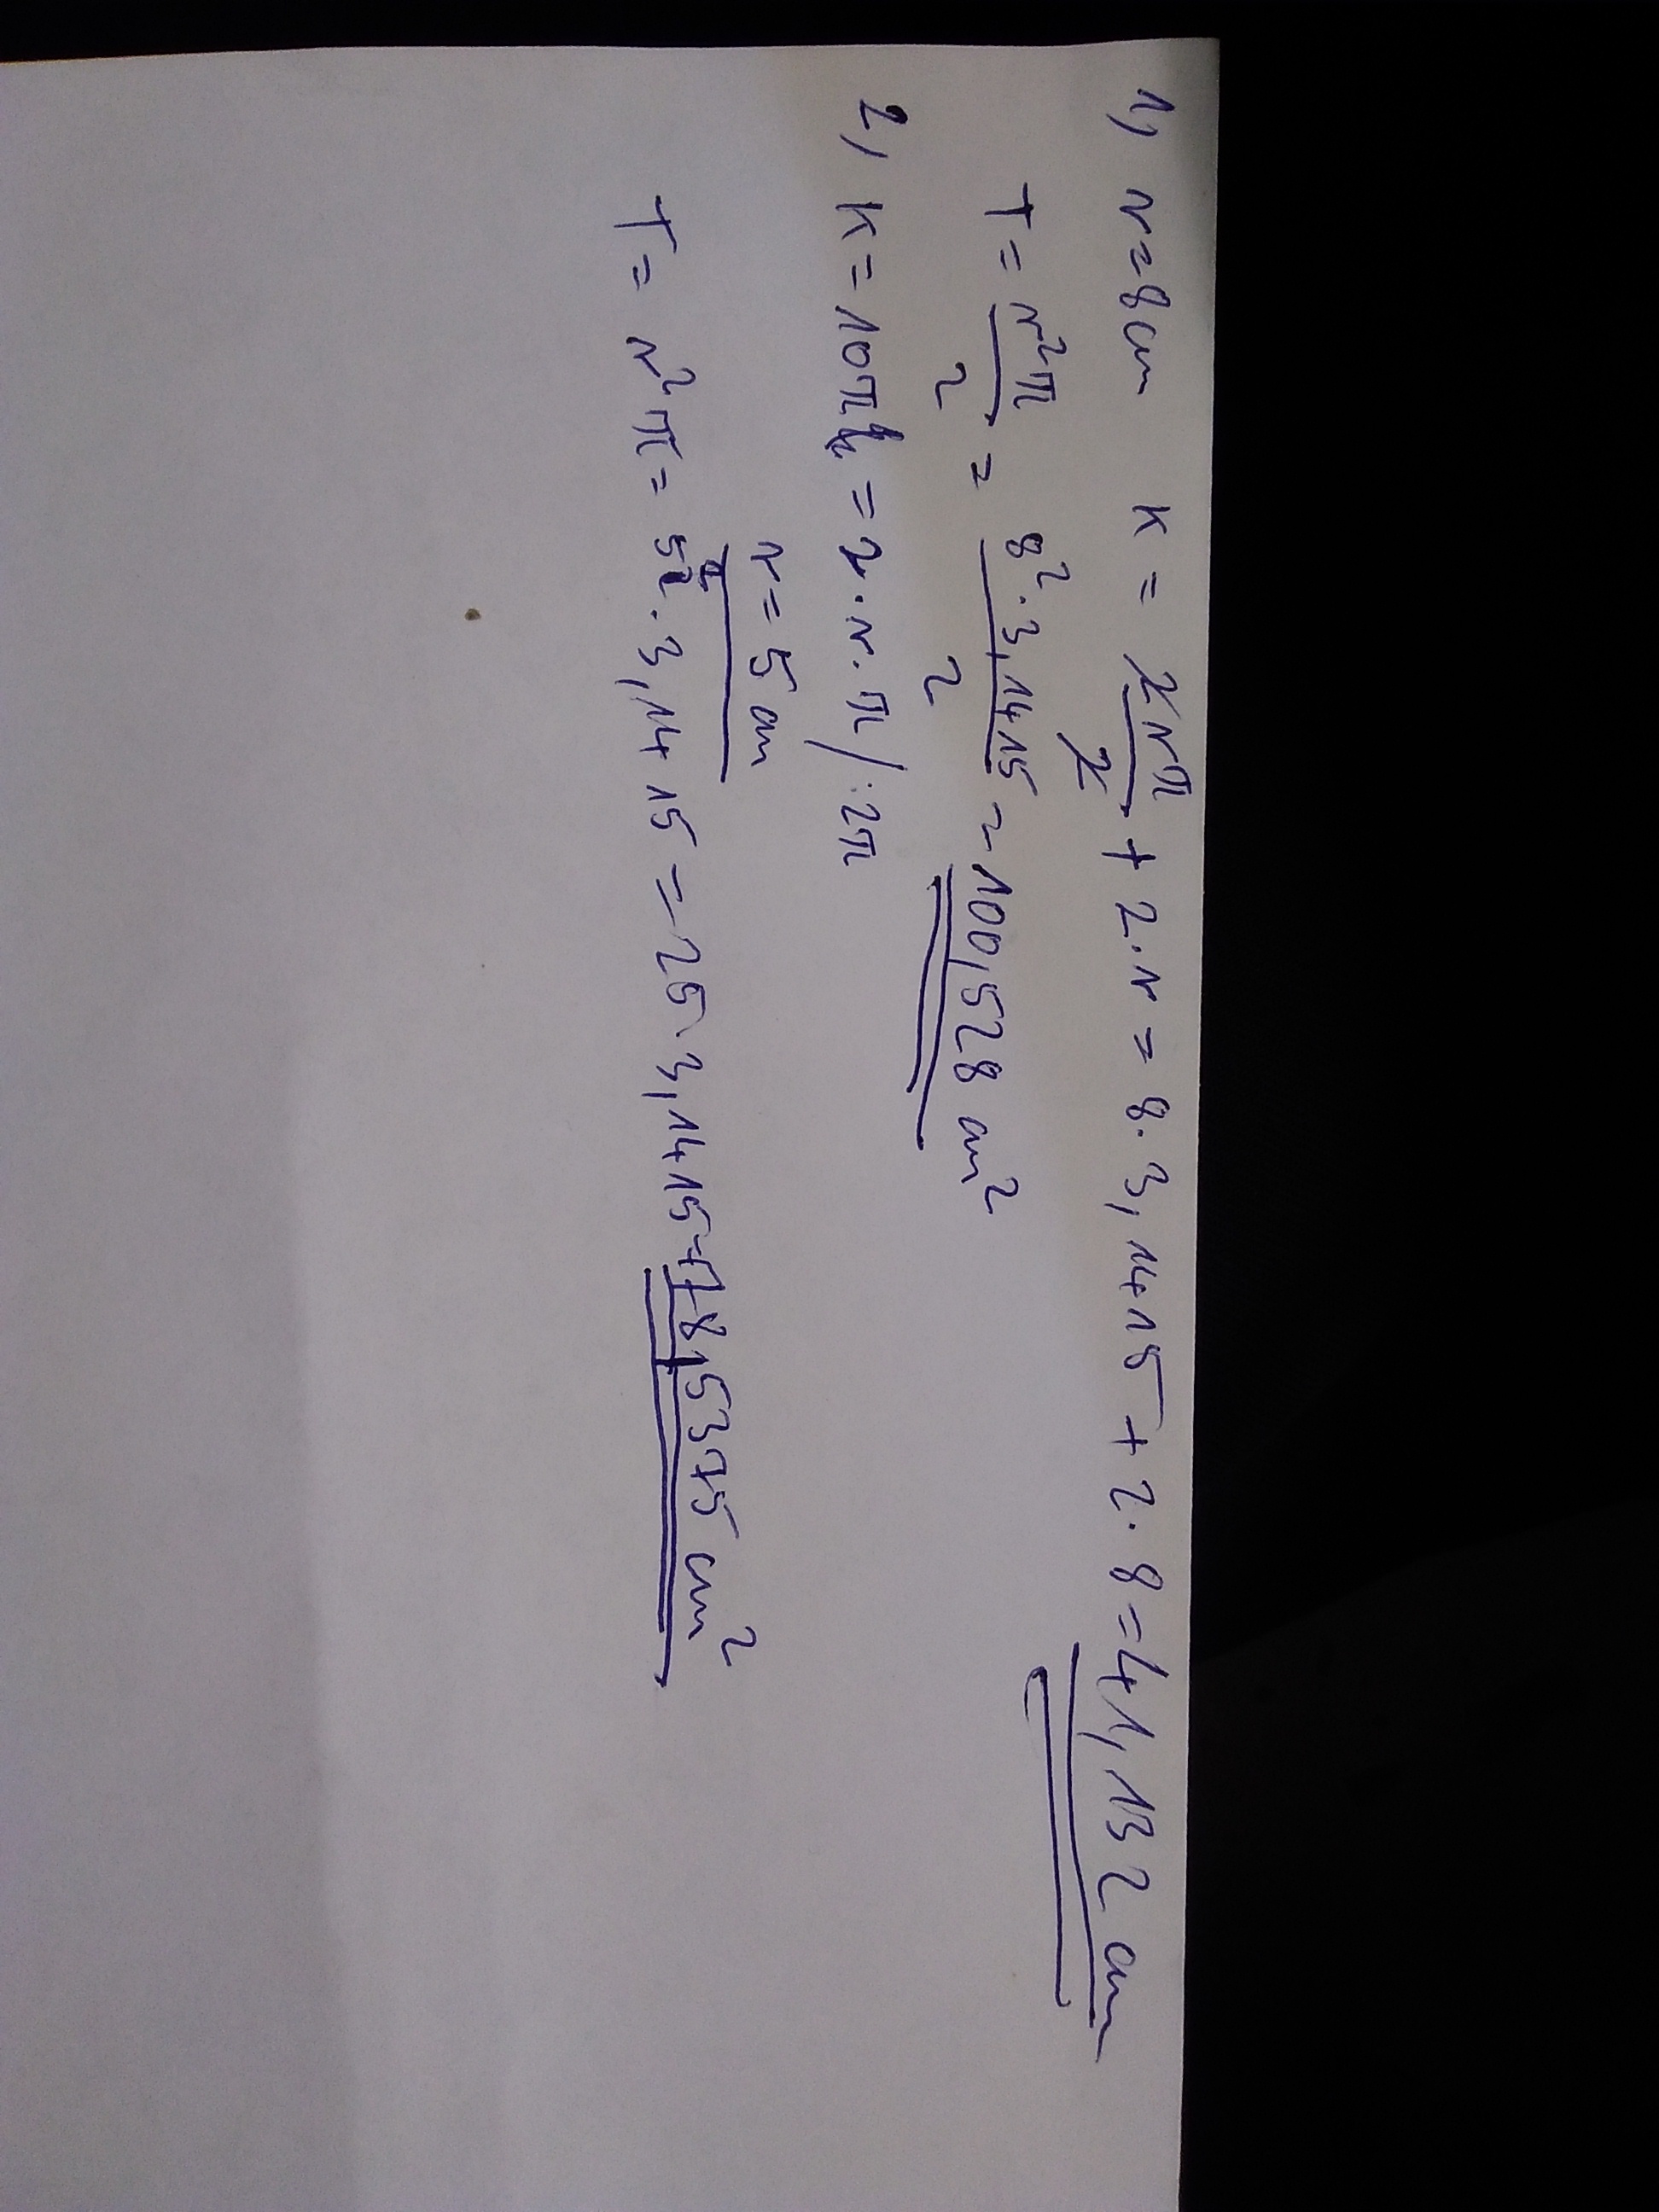 1) r=8cm K = 2rπ/2 + 2·r = 8·3,1415 + 2·8 = 41,132 cm
T = r²π/2 = 8²·3,1415/2 = 100,528 cm²
2) K = 10π = 2·r·π /:2π
r = 5 cm
T = r²π = 5²·3,1415 = 25·3,1415 = 78,5375 cm²